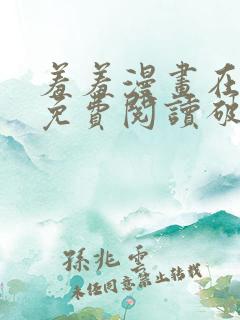 羞羞漫畫在
免費閱讀破
孫兆雲
未经同意禁止转载